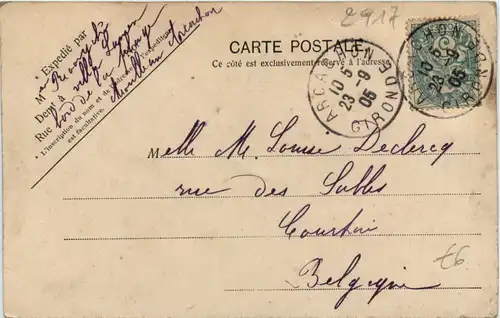 2917
Expédié par
M
Demt à villa
Rue bord de la plage
* L'inscription du nom et de l'adresse de l'expéditeur
est facultative.
Arcachon
CARTE POSTALE
Ce côté est exclusivement réservé à l'adresse
ARCACHON
10 5
23 -9
05
GIRONDE
ARCACHON
10 5
23 -9
05
GIRONDE
Melle M. Louise Declercq
rue des Sables
Courtrai
Belgique
£6